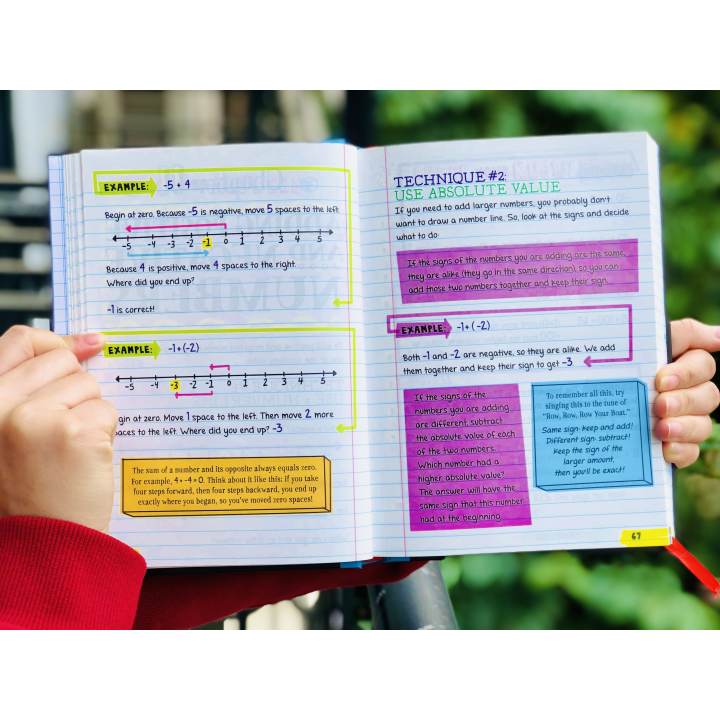 EXAMPLE: -5 + 4
Begin at zero. Because -5 is negative, move 5 spaces to the left
-5 -4 -3 -2 -1 0 1 2 3 4 5
Because 4 is positive, move 4 spaces to the right.
Where did you end up?
-1 is correct!
EXAMPLE: -1+(-2)
-5 -4 -3 -2 -1 0 1 2 3 4 5
gin at zero. Move 1 space to the left. Then move 2 more
aces to the left. Where did you end up? -3
The sum of a number and its opposite always equals zero.
For example, 4+-4=0. Think about it like this: If you take
four steps forward, then four steps backward, you end up
exactly where you began, so you've moved zero spaces!
TECHNIQUE #2:
USE ABSOLUTE VALUE
If you need to add larger numbers, you probably don't
want to draw a number line. So, look at the signs and decide
what to do:
If the signs of the numbers you are adding are the same,
they are alike (they go in the same direction), so you can
add those two numbers together and keep their sign.
EXAMPLE: -1+(-2)
Both -1 and -2 are negative, so they are alike. We add
them together and keep their sign to get -3.
If the signs of the
numbers you are adding
are different, subtract
the absolute value of each
of the two numbers.
Which number had a
higher absolute value?
The answer will have the
same sign that this number
had at the beginning.
To remember all this, try
singing this to the tune of
"Row, Row, Row Your Boat."
Same sign: keep and add!
Different sign: subtract!
Keep the sign of the
larger amount,
then you'll be exact!
67